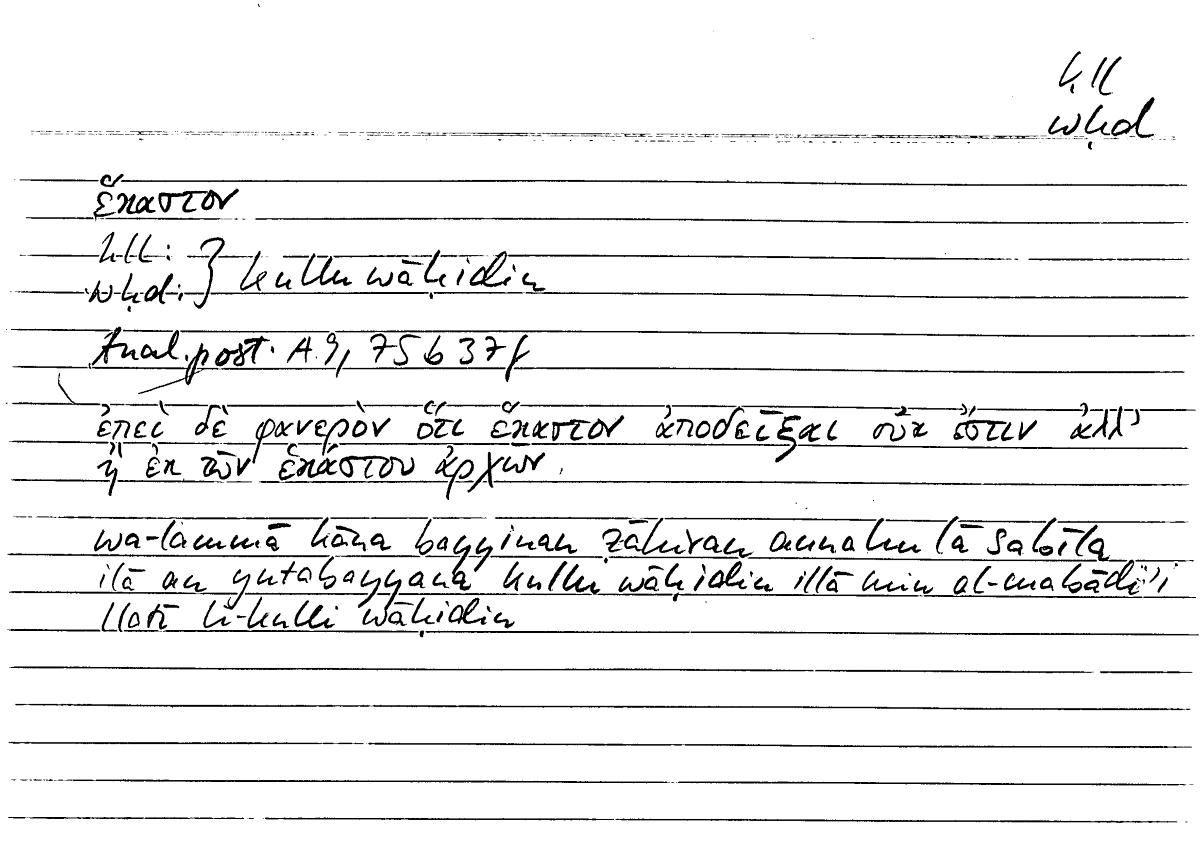 kll
wḥd
ἕκαστον
kll:
wḥd: } kullu wāḥidin
Anal. post. A 9, 75 b 37 f
ἐπεὶ δὲ φανερὸν ὅτι ἕκαστον ἀποδεῖξαι οὐκ ἔστιν ἀλλ’
ἢ ἐκ τῶν ἑκάστου ἀρχῶν.
wa-lammā kāna bayyinan ẓāhiran annahu lā sabīla
ilā an yutabayyana kullu wāḥidin illā min al-mabādi’i
llatī li-kulli wāḥidin